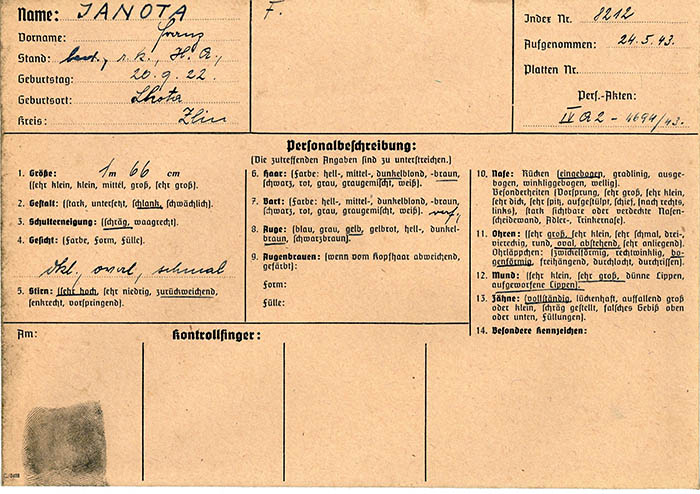 Name: JANOTA
Vorname: Franz
Stand: led., r. k., H. A.,
Geburtstag: 20. 9. 22.
Geburtsort: Lhota
Kreis: Zlin
F.
Index Nr. 8212
Aufgenommen: 24. 5. 43.
Platten Nr.
Pers.-Akten:
IV A 2 - 4694/43.
Personalbeschreibung:
(Die zutreffenden Angaben sind zu unterstreichen.)
1. Größe: 1 m 66 cm
(sehr klein, klein, mittel, groß, sehr groß).
2. Gestalt: (stark, untersetzt, schlank, schwächlich).
3. Schulterneigung: (schräg, waagrecht).
4. Gesicht: (Farbe, Form, Fülle).
dkl., oval, schmal
5. Stirn: (sehr hoch, sehr niedrig, zurückweichend,
senkrecht, vorspringend).
6. Haar: (Farbe: hell-, mittel-, dunkelblond, -braun,
schwarz, rot, grau, graugemischt, weiß).
7. Bart: (Farbe: hell-, mittel-, dunkelblond, -braun,
schwarz, rot, grau, graugemischt, weiß).
8. Auge: (blau, grau, gelb, gelbrot, hell-, dunkel-
braun, schwarzbraun).
9. Augenbrauen: (wenn vom Kopfhaar abweichend,
gefärbt):
Form:
Fülle:
10. Nase: Rücken (eingebogen, gradlinig, ausge-
bogen, winkliggebogen, wellig).
Besonderheiten (Vorsprung, sehr groß, sehr klein,
sehr dick, sehr spitz, aufgestülpt, schief, (nach rechts,
links), stark sichtbare oder verdeckte Nasen-
scheidewand, Adler-, Trinkernase).
11. Ohren: (sehr groß, sehr klein, sehr schmal, drei-
viereckig, rund, oval, abstehend, sehr anliegend).
Ohrläppchen: (zwickelförmig, rechtwinklig, bo-
genförmig, freihängend, durchlocht, durchrissen).
12. Mund: (sehr klein, sehr groß, dünne Lippen,
aufgeworfene Lippen).
13. Zähne: (vollständig, lückenhaft, auffallend groß
oder klein, schräg gestellt, falsches Gebiß oben
oder unten, Füllungen).
14. Besondere Kennzeichen:
Am:
Kontrollfinger: